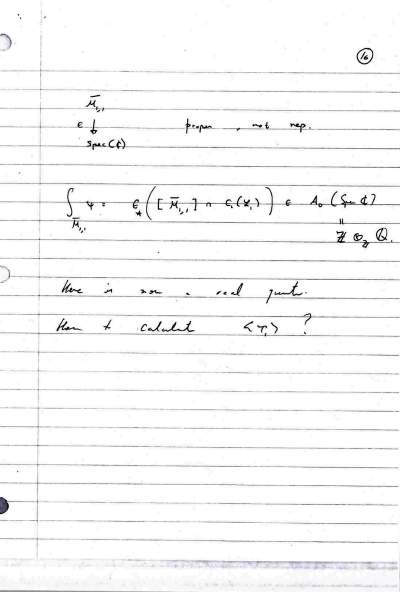 16
M̄₁,₁
ε ↓ proper, not rep.
Spec(ℂ)
∫_{M̄₁,₁} ψ = ε_*([M̄₁,₁] ∩ c₁(𝕃₁)) ∈ A₀(Spec ℂ)
=
ℤ ⊗_ℤ ℚ.
Here is now a real question.
How to calculate <τ₁> ?